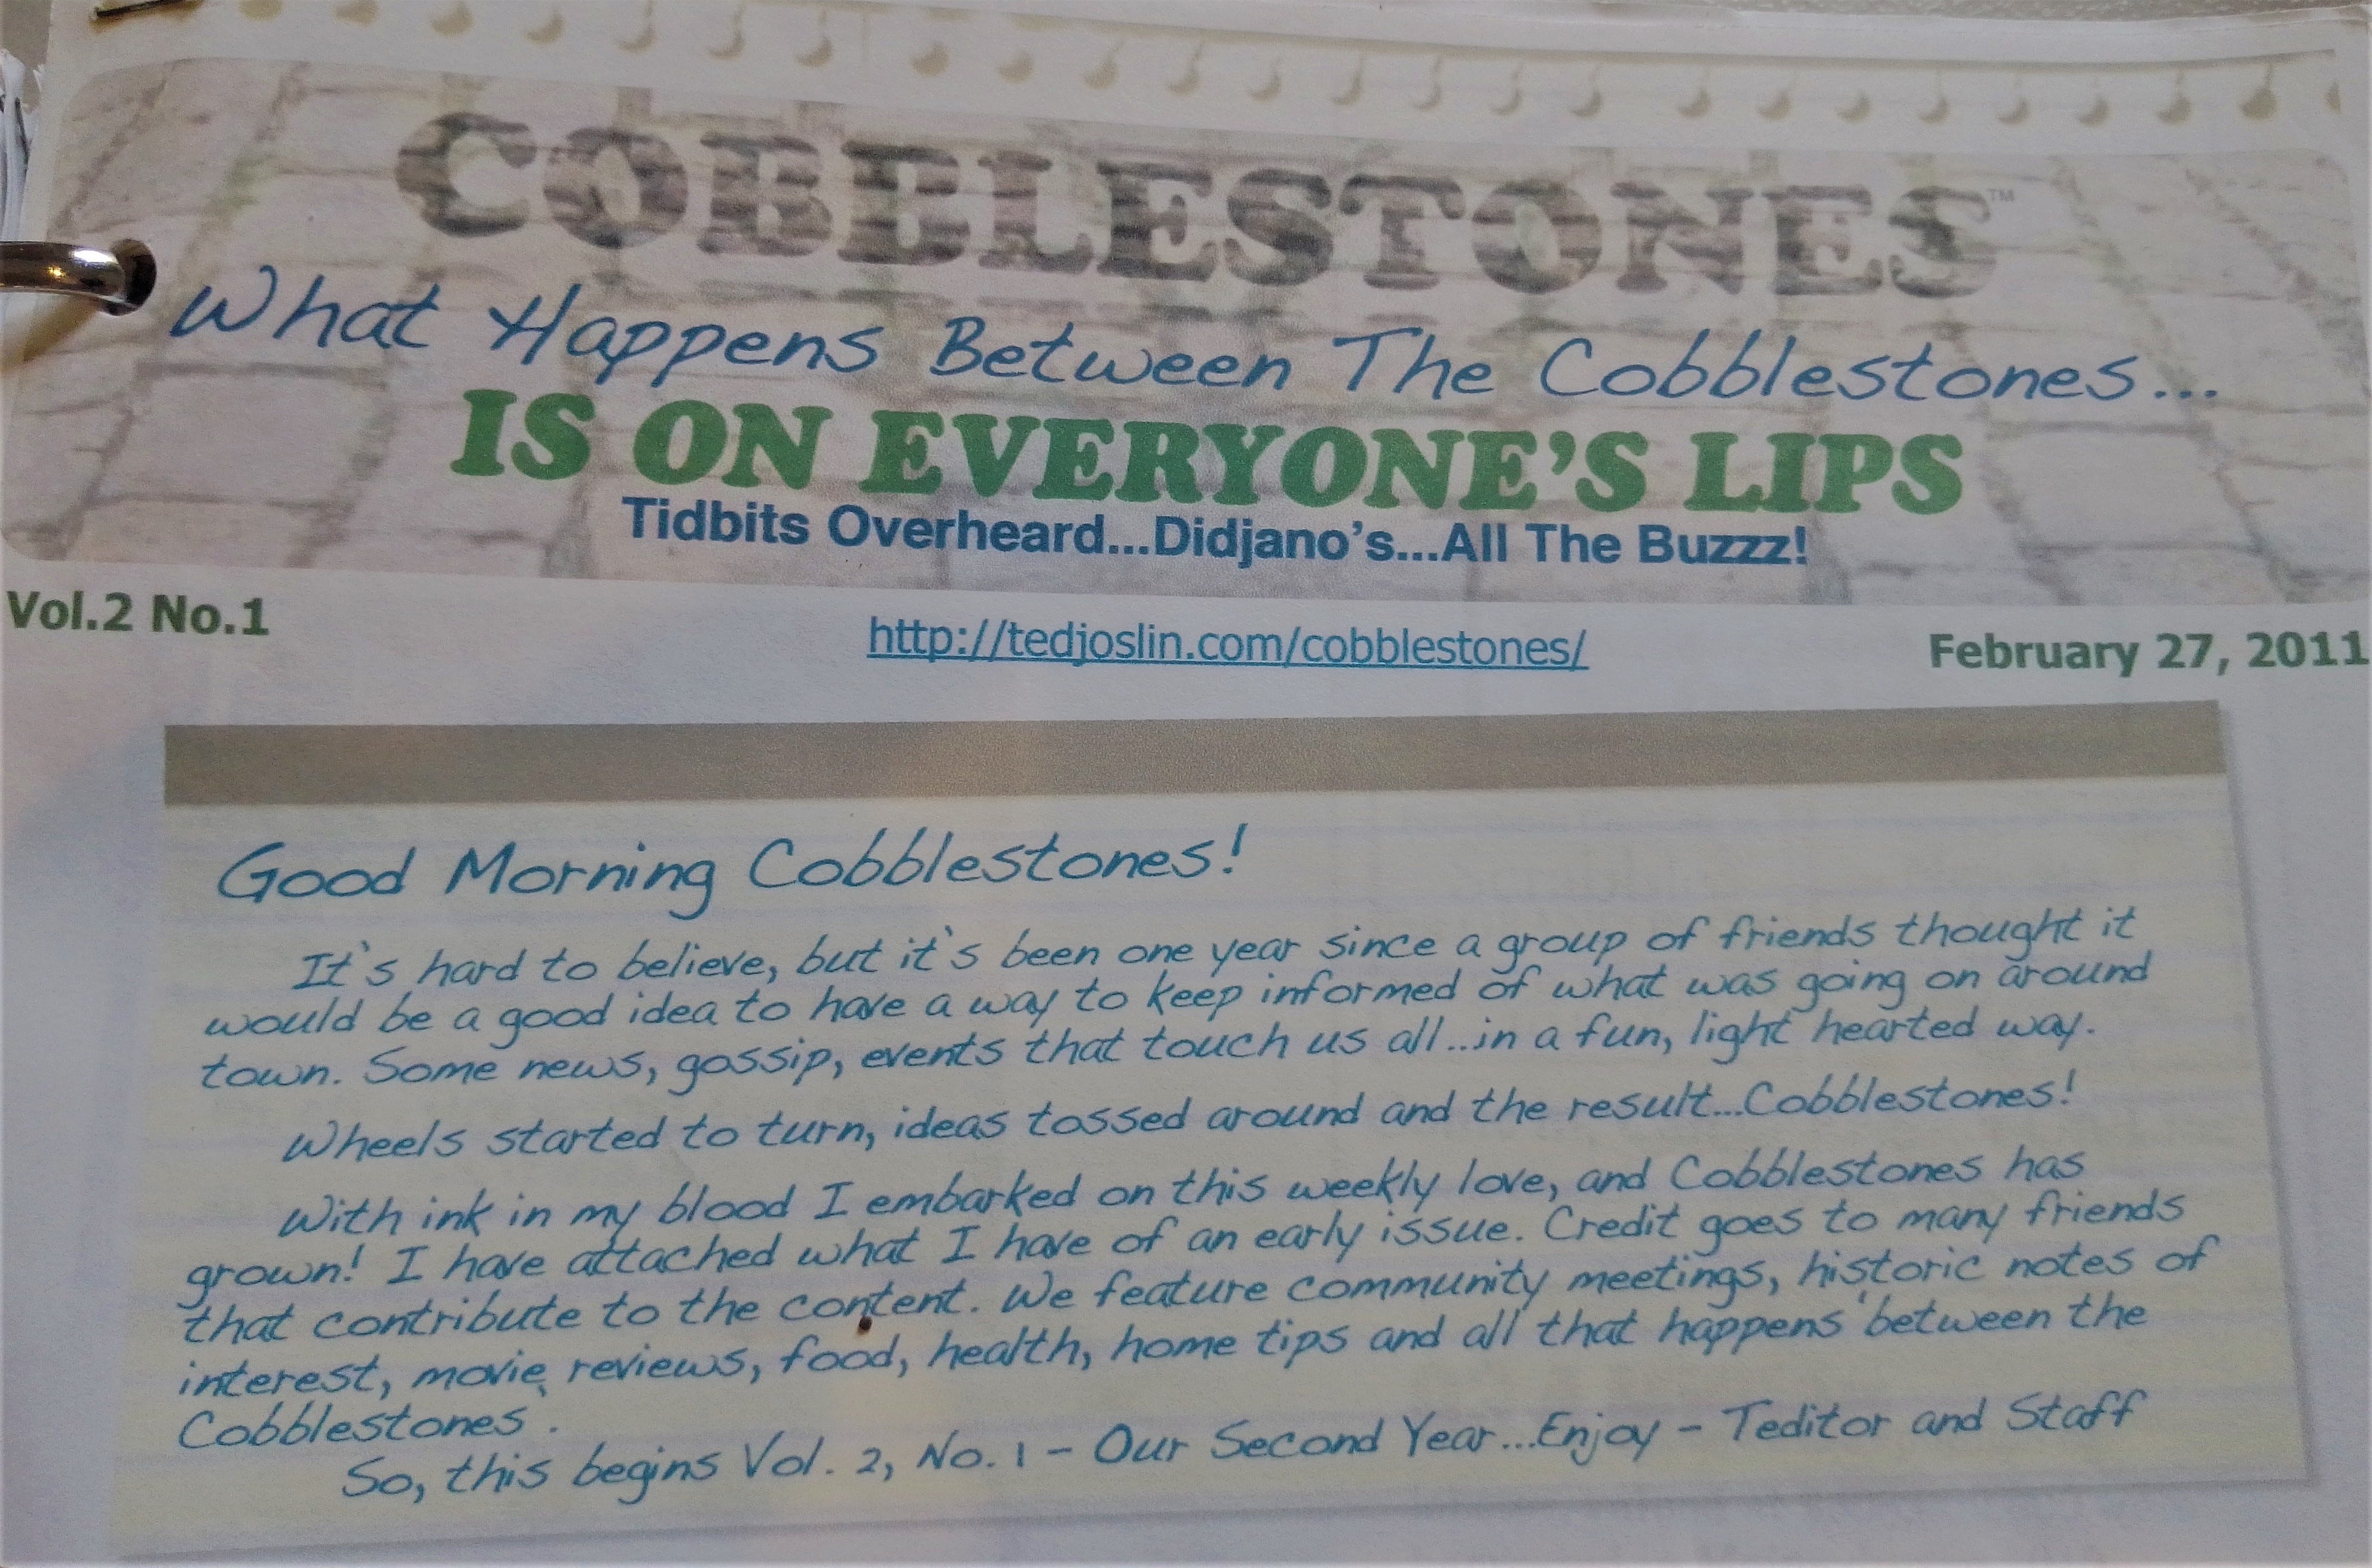 COBBLESTONES™
What Happens Between The Cobblestones...
IS ON EVERYONE'S LIPS
Tidbits Overheard...Didjano's...All The Buzzz!
Vol.2 No.1
http://tedjoslin.com/cobblestones/
February 27, 2011
Good Morning Cobblestones!
It's hard to believe, but it's been one year since a group of friends thought it
would be a good idea to have a way to keep informed of what was going on around
town. Some news, gossip, events that touch us all...in a fun, light hearted way.
Wheels started to turn, ideas tossed around and the result...Cobblestones!
With ink in my blood I embarked on this weekly love, and Cobblestones has
grown! I have attached what I have of an early issue. Credit goes to many friends
that contribute to the content. We feature community meetings, historic notes of
interest, movie reviews, food, health, home tips and all that happens 'between the
Cobblestones'.
So, this begins Vol. 2, No. 1 - Our Second Year...Enjoy - Teditor and Staff